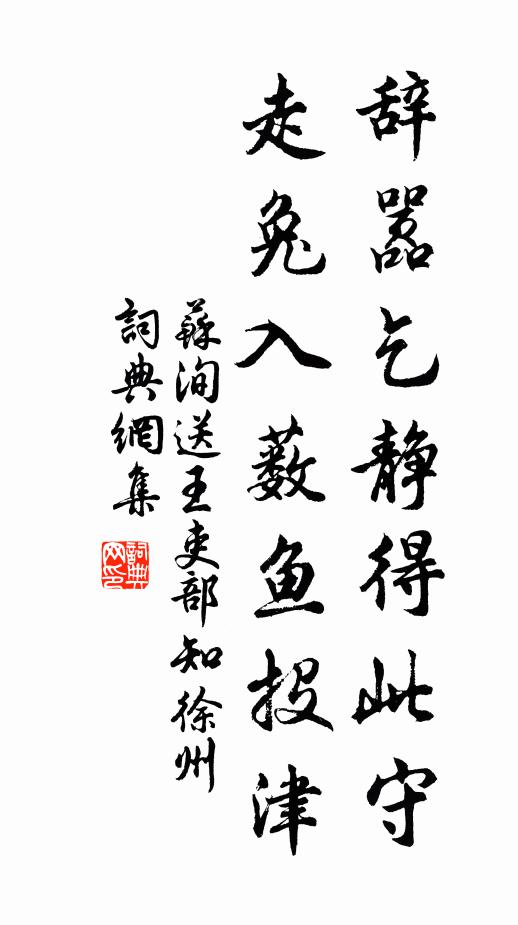 辞嚣乞静得此守
走兔入薮鱼投津
蘇洵送王吏部知徐州
詞典網集
詞典网印